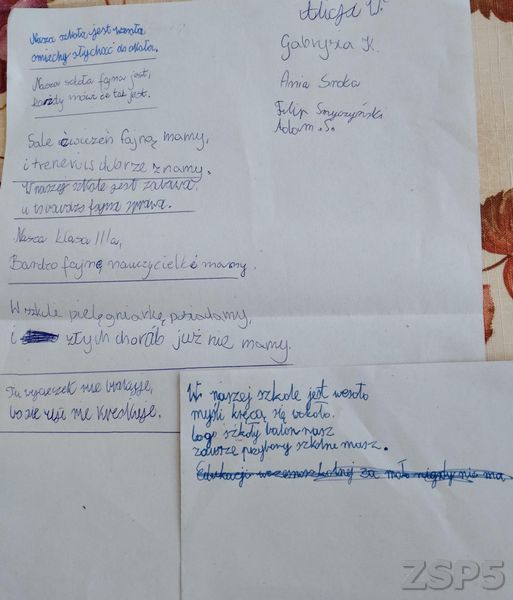 Nasza szkoła jest wesoła
śmiechy słychać do okoła.
Nasza szkoła fajna jest,
każdy mówi że tak jest.
Sale ćwiczeń fajną mamy,
i trenerów dobrze znamy.
W naszej szkole jest zabawa,
fajna sprawa.
Nasza klasa IIIa,
Bardzo fajną nauczycielkę mamy.
W szkole pielęgniarkę posiadamy,
i złych chorób już nie mamy.
Tu wycieczek nie brakuje,
bo się nie
Alicja W.
Gabrysia K.
Ania Sroka
Filip
Adam .S.
W naszej szkole jest wesoło
myśli kręcą się wokoło.
logo szkoły balon nasz
zawsze przybory szkolne masz.
Edukacji wczesnoszkolnej za mało nigdy nie ma
ZSP5